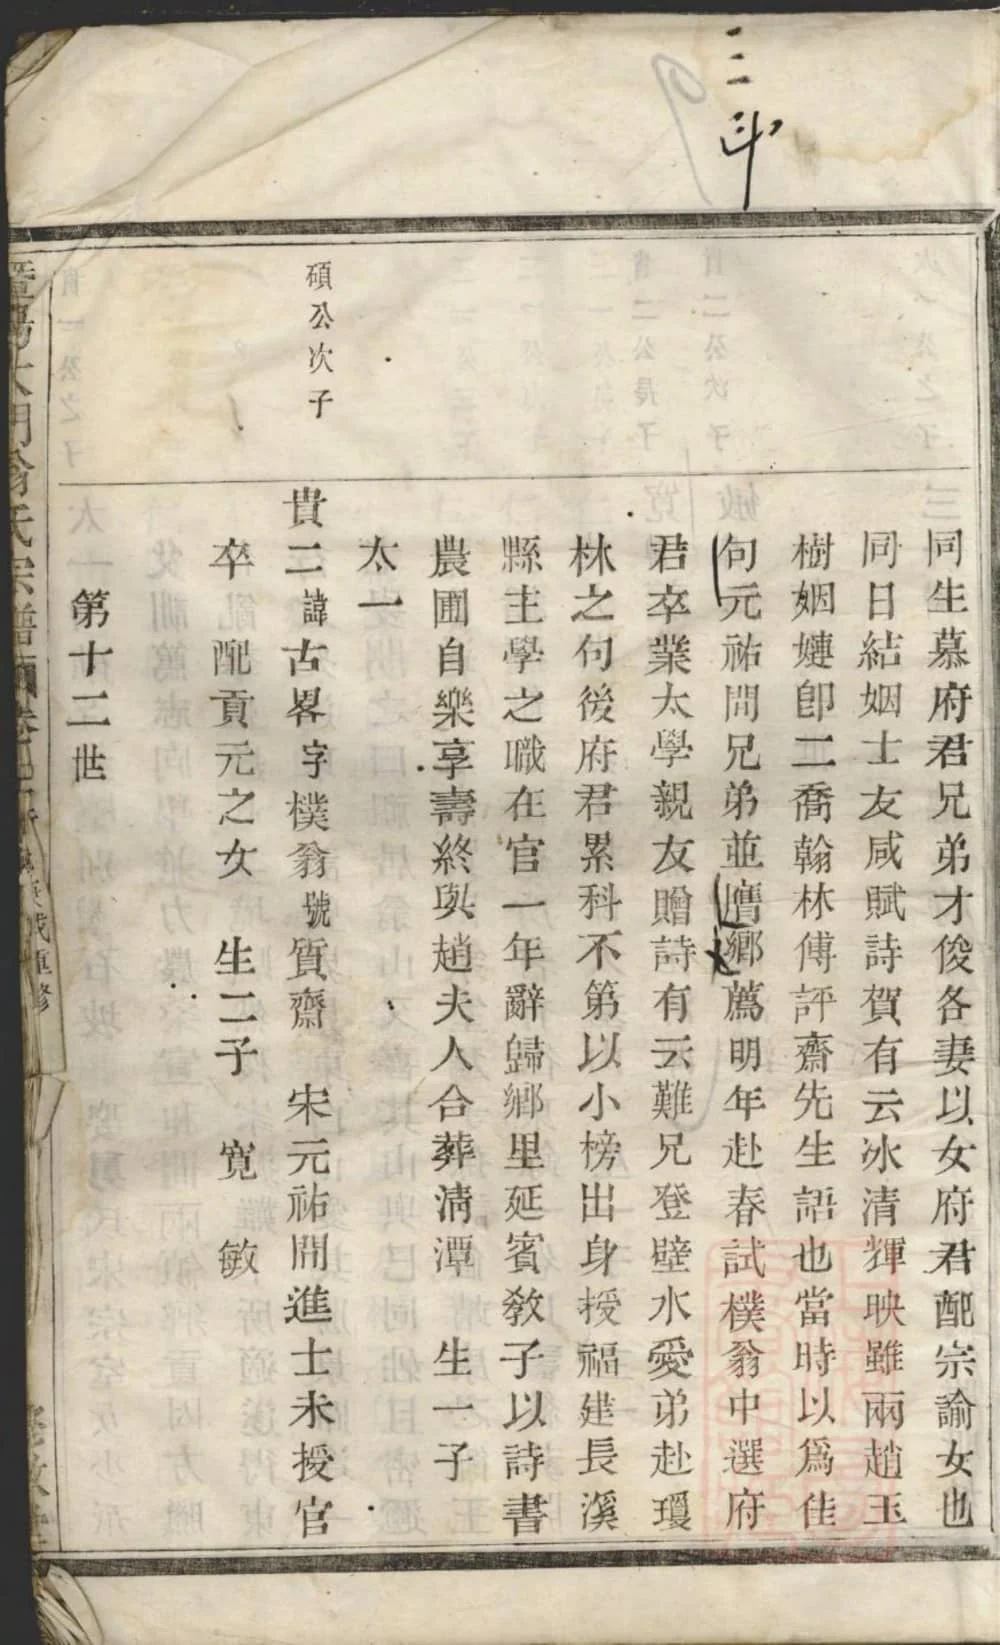 三斗
同生慕府君兄弟才俊各妻以女府君配宗諭女也
同日結姻士友咸賦詩賀有云冰清輝映雖兩趙玉
樹姻婕卽二喬翰林傅評齋先生語也當時以爲佳
句元祐間兄弟並膺鄉薦明年赴春試樸翁中選府
君卒業太學親友贈詩有云難兄登壁水愛弟赴瓊
林之句後府君累科不第以小榜出身授福建長溪
縣主學之職在官一年辭歸鄉里延賓敎子以詩書
農圃自樂享壽終與趙夫人合葬清潭 生一子
太一
碩公次子
貴二諱古畧字樸翁號質齋 宋元祐間進士未授官
卒 配貢元之女 生二子 寬 敏
第十二世
氏宗譜
重修